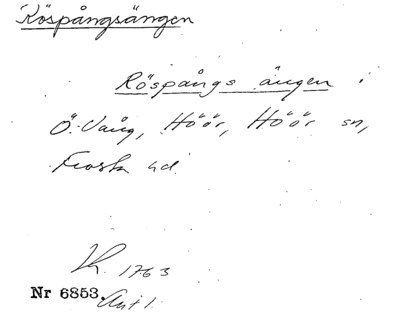 Röspångsängen
Röspångs ängen
Ö. Vång, Höör, Höör sn,
Frosta hd
1763
Nr 6853.